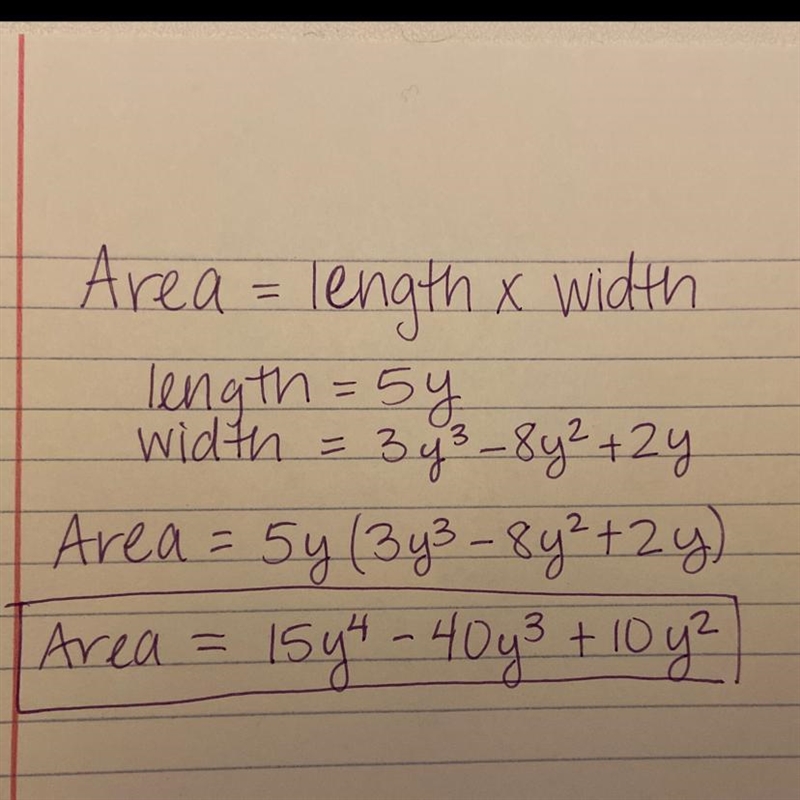 Area = length x width
length = 5y
width = 3y³ - 8y² + 2y
Area = 5y (3y³ - 8y² + 2y)
Area = 15y⁴ - 40y³ + 10y²